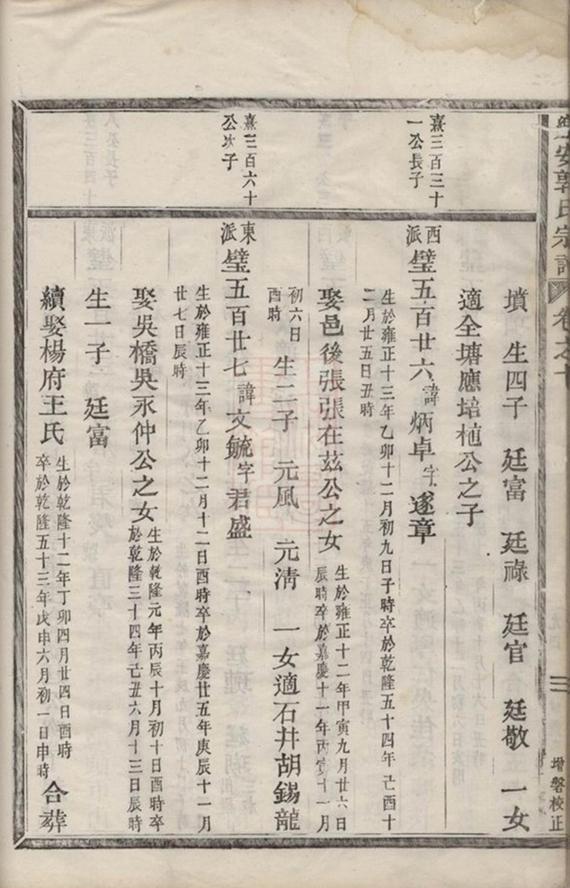 郭氏宗譜
卷之十
三
增磐校正
墳 生四子 廷富 廷祿 廷官 廷敬 一女
適全塘應培植公之子
熹三百三十
一公長子
西派 璧五百廿六 諱炳卓字遂章
生於雍正十三年乙卯十二月初九日子時卒於乾隆五十四年己酉十
二月廿五日丑時
娶邑後張張在茲公之女
生於雍正十二年甲寅九月廿六日
辰時卒於嘉慶十一年丙寅十一月
初六日
酉時
生二子 元風 元清 一女適石井胡錫龍
熹三百六十
公次子
東派 璧五百廿七 諱文毓字君盛
生於雍正十三年乙卯十二月十二日酉時卒於嘉慶廿五年庚辰十一月
廿七日辰時
娶吳橋吳永仲公之女
生於乾隆元年丙辰十月初十日酉時卒
於乾隆三十四年己丑六月十三日辰時
生一子 廷富
續娶楊府王氏
生於乾隆十二年丁卯四月廿四日酉時
卒於乾隆五十三年戊申六月初一日申時
合葬